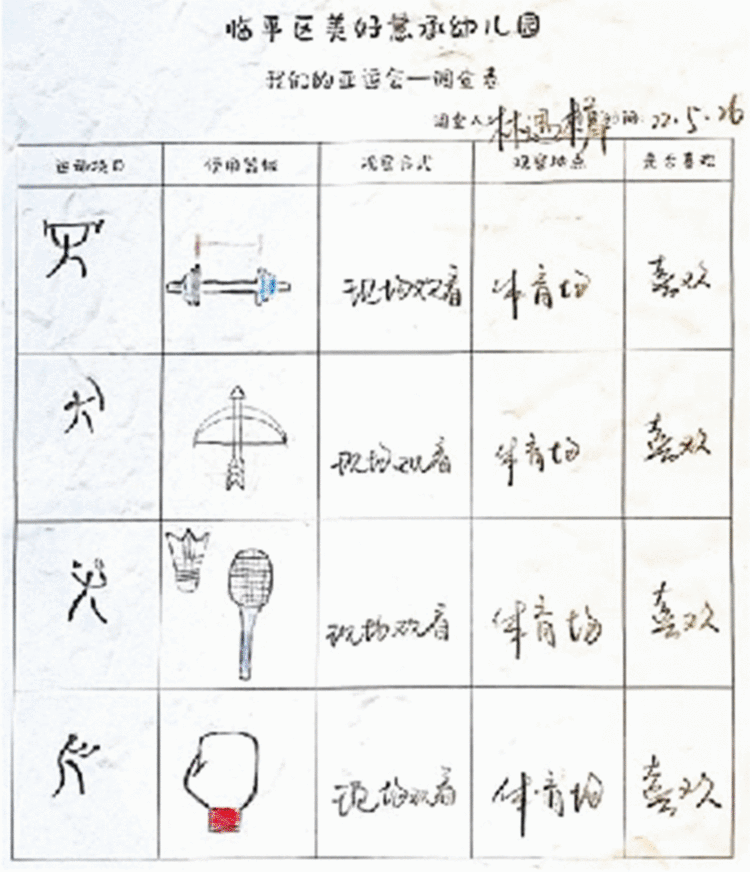 临平区美好慧承幼儿园
我们的亚运会—调查表
调查人: 时间: 22.5.26
运动项目 使用器械 观看方式 观看地点 是否喜欢
现场观看 体育场 喜欢
现场观看 体育场 喜欢
现场观看 体育场 喜欢
现场观看 体育场 喜欢